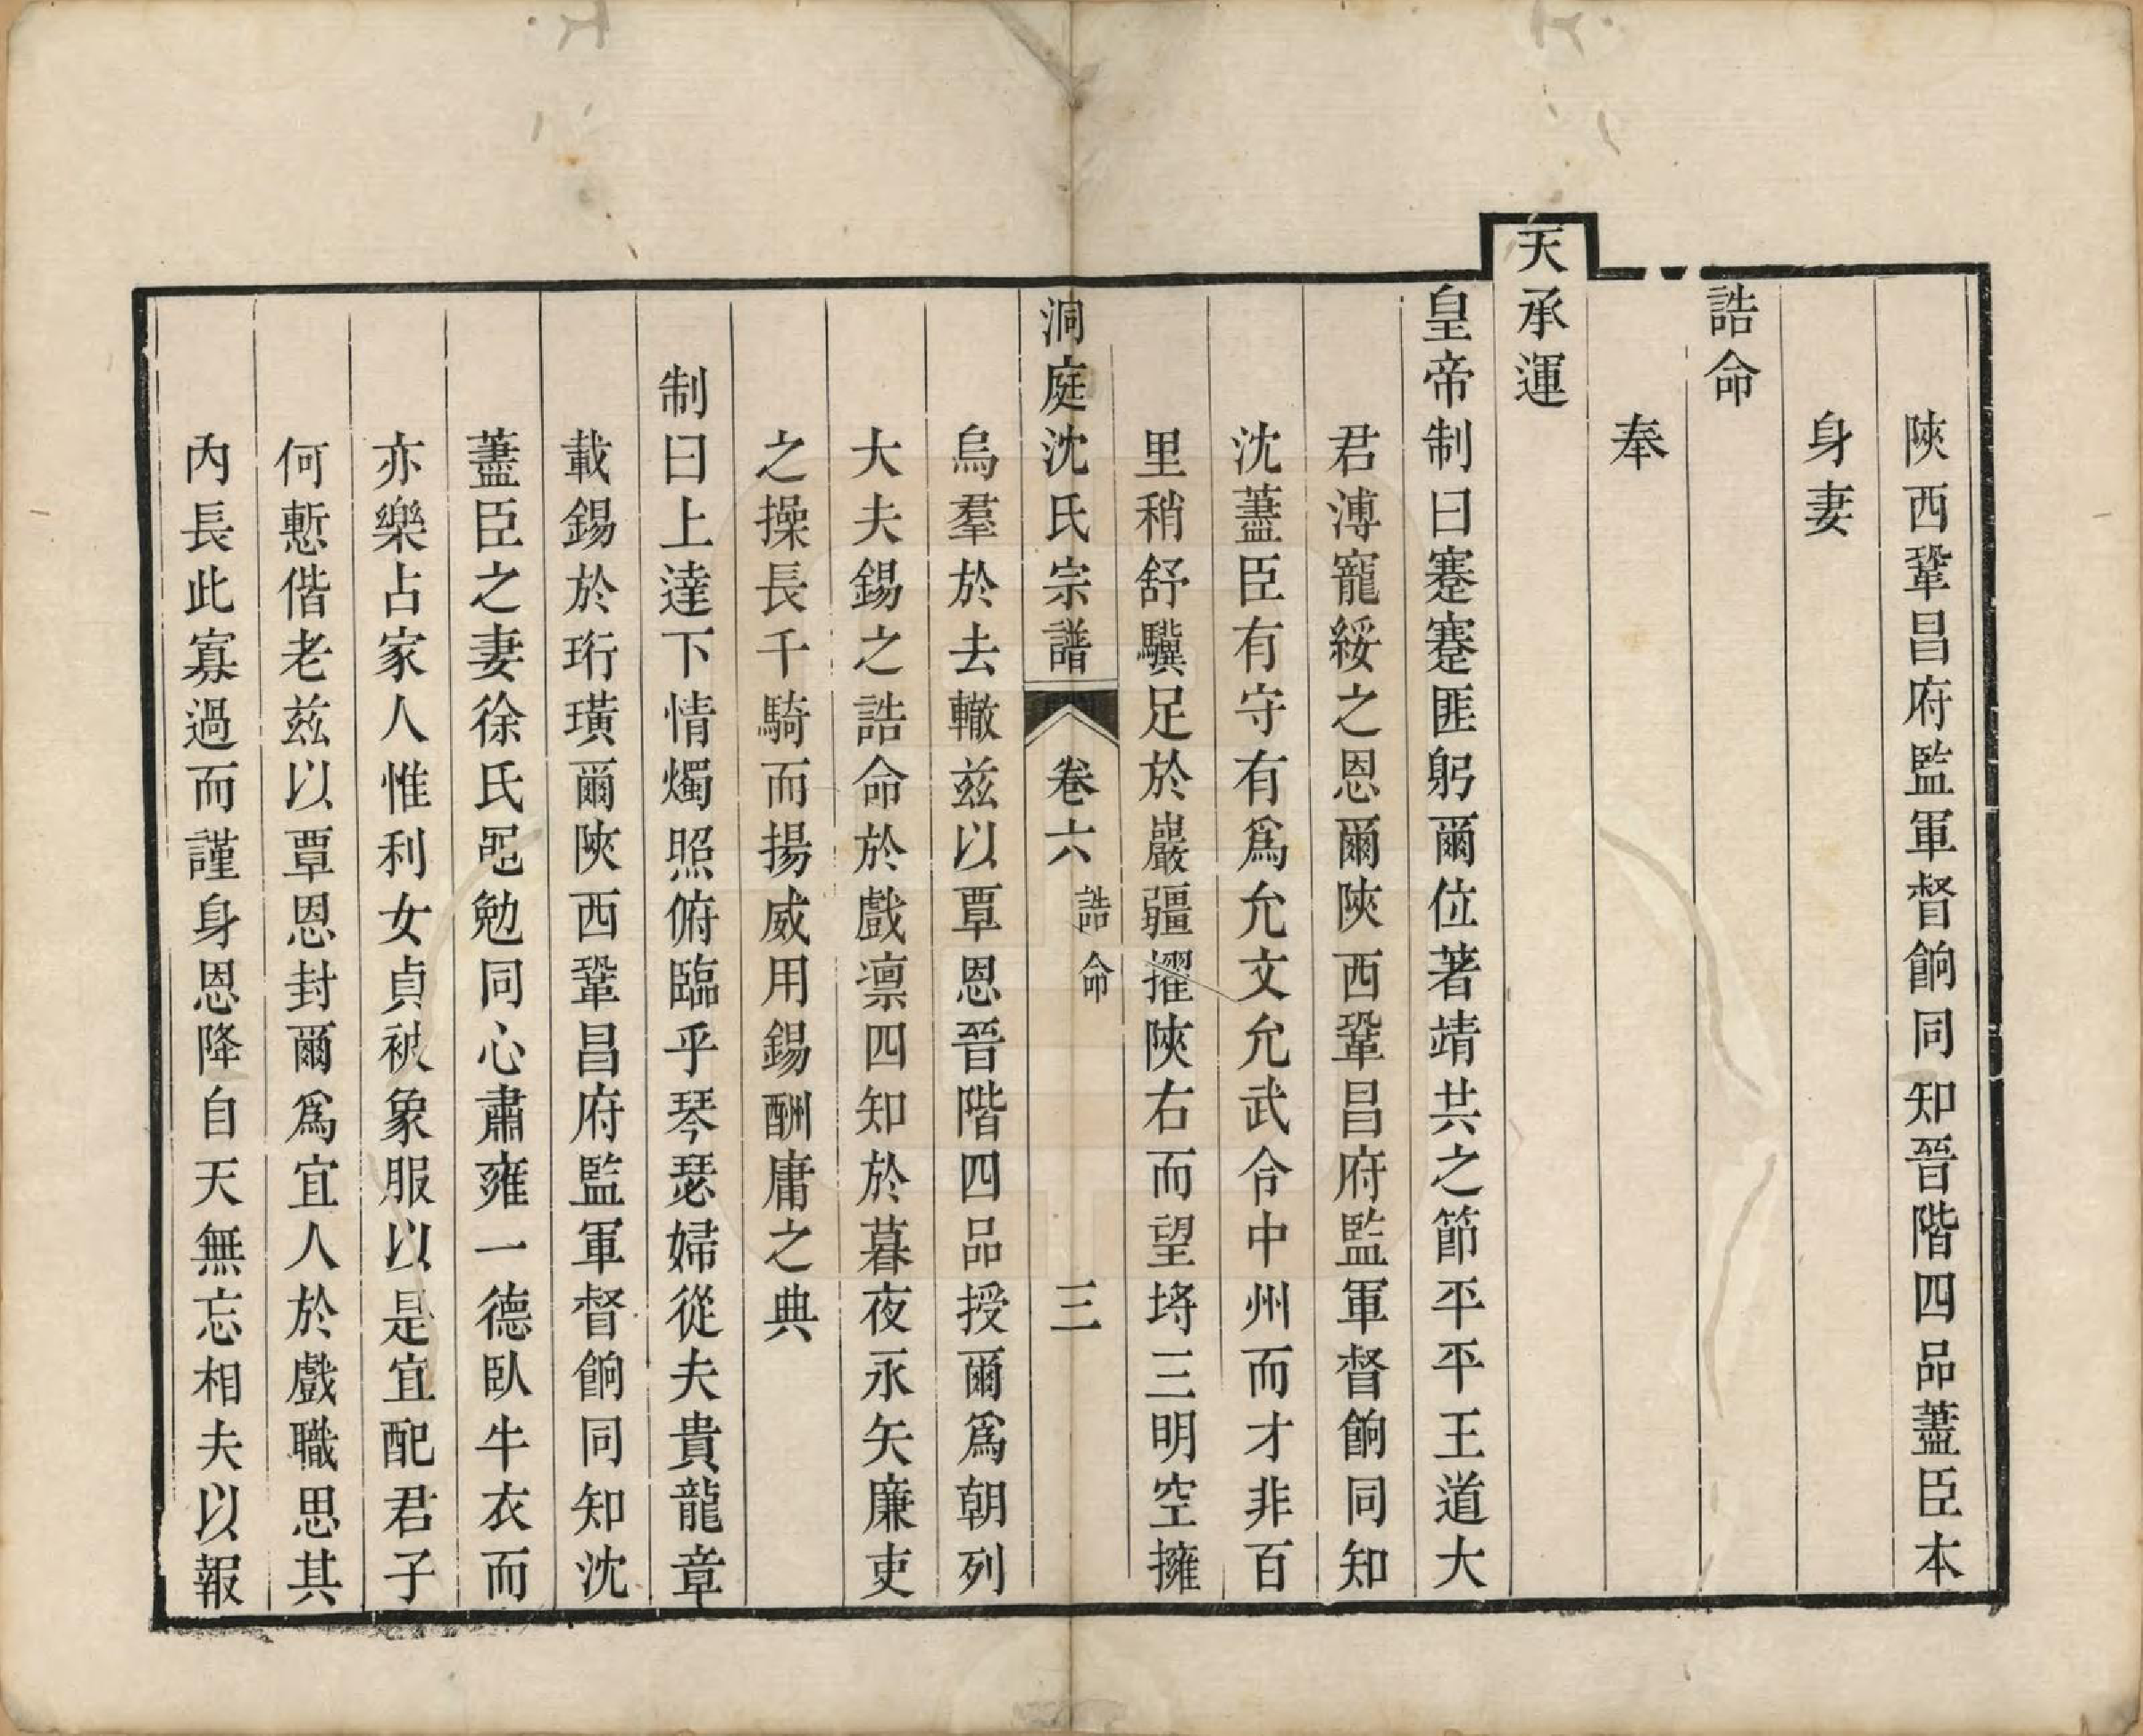 陝西鞏昌府監軍督餉同知晉階四品藎臣本
身妻
誥命
奉
天承運
皇帝制曰蹇蹇匪躬爾位著靖共之節平平王道大
君溥寵綏之恩爾陝西鞏昌府監軍督餉同知
沈藎臣有守有爲允文允武令中州而才非百
里稍舒驥足於巖疆擢陝右而望埒三明空擁
洞庭沈氏宗譜
卷六
誥命
三
烏羣於去轍茲以覃恩晉階四品授爾爲朝列
大夫錫之誥命於戲凛四知於暮夜永矢廉吏
之操長千騎而揚威用錫酬庸之典
制曰上達下情燭照俯臨乎琴瑟婦從夫貴龍章
載錫於珩璜爾陝西鞏昌府監軍督餉同知沈
藎臣之妻徐氏黾勉同心肅雍一德臥牛衣而
亦樂占家人惟利女貞被象服以是宜配君子
何慙偕老茲以覃恩封爾爲宜人於戲職思其
內長此寡過而謹身恩降自天無忘相夫以報